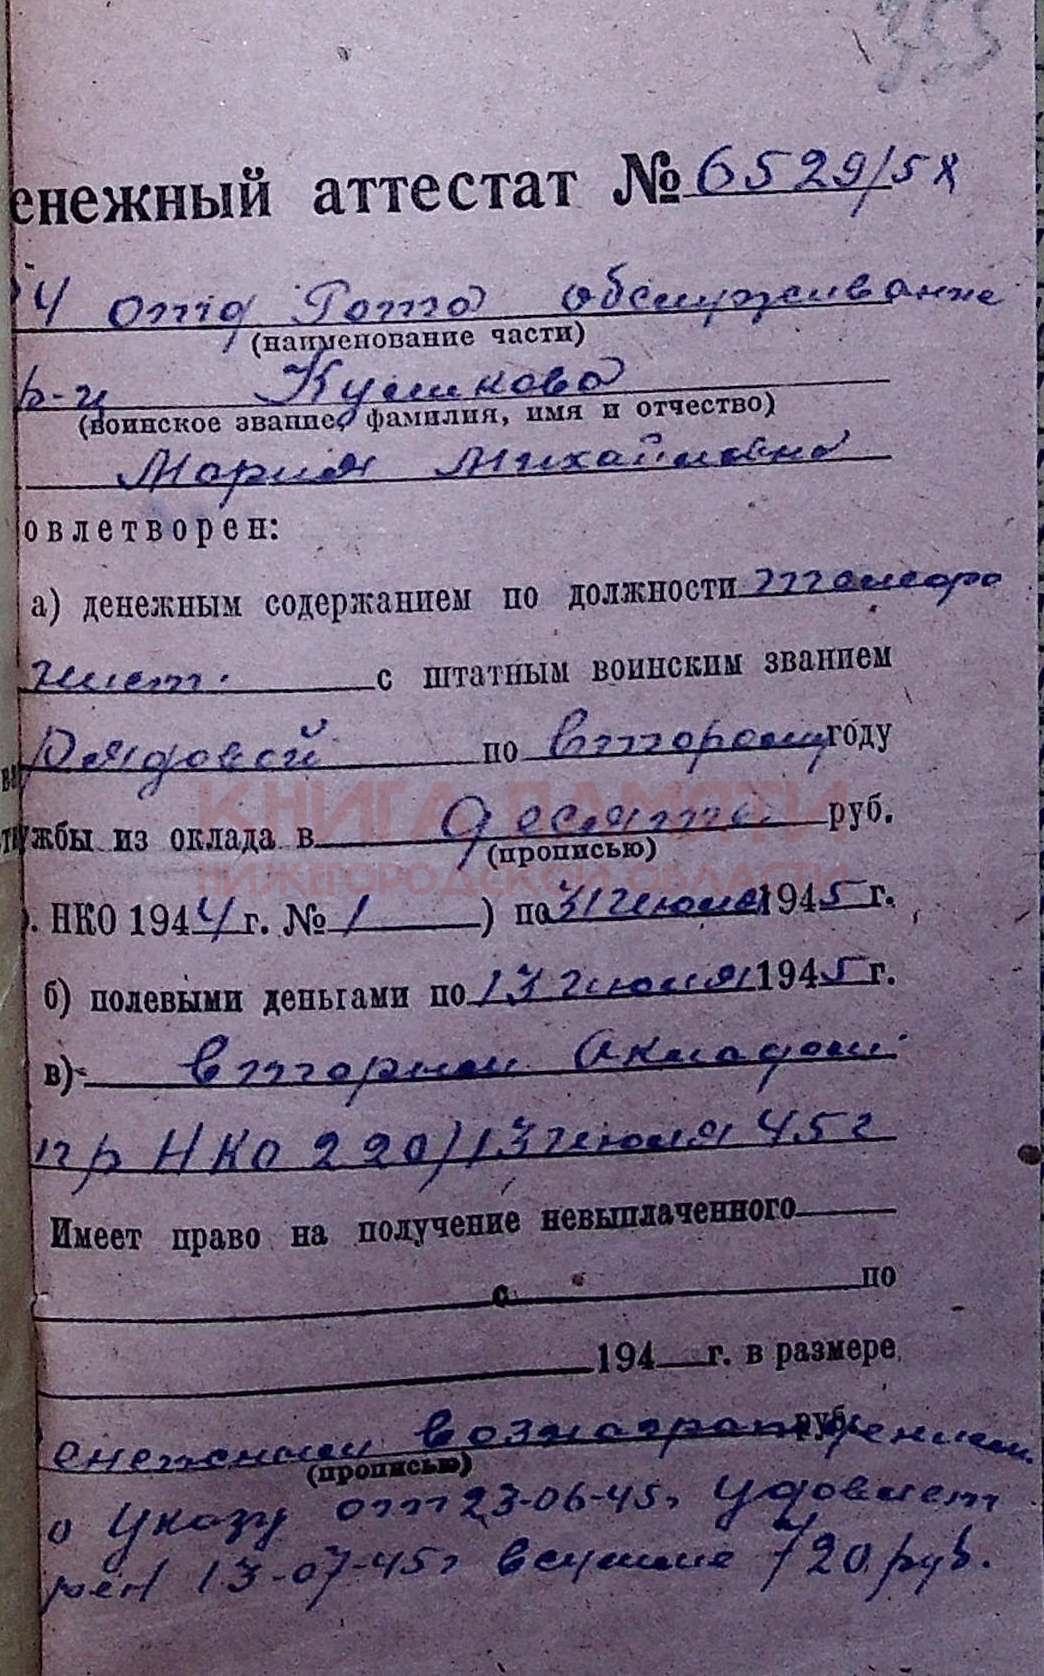 355
енежный аттестат № 6529/58
4 отд Рота обслуживание
(наименование части)
р-ц Кушкова
(воинское звание, фамилия, имя и отчество)
Мария Михайловна
овлетворен:
а) денежным содержанием по должности
с штатным воинским званием
Рядовой по второму году
ужбы из оклада в десять руб.
(прописью)
КНИГА ПАМЯТИ
НИЖЕГОРОДСКОЙ ОБЛАСТИ
). НКО 1944 г. № 1 ) по 31 июля 1945 г.
б) полевыми деньгами по 13 июля 1945 г.
в) вторым окладом
пр НКО 220) 13 июля 45 г
Имеет право на получение невыплаченного
с по
194 г. в размере
енежным вознаграждением руб.
(прописью)
о Указу от 23-06-45 г удовлет
рен 13-07-45 г всумме 720 руб.